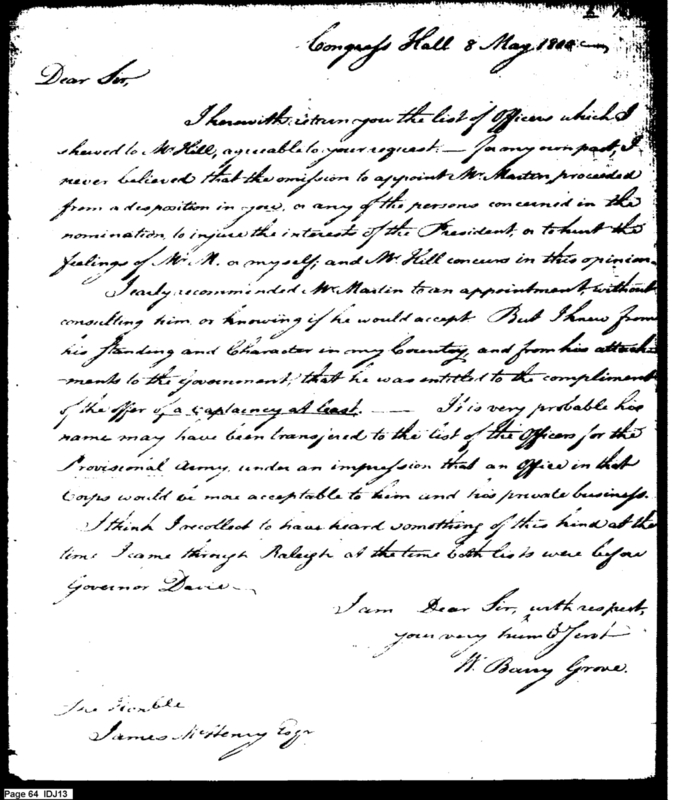 Congress Hall 8 May 1800
Dear Sir,
I herewith return you the list of Officers which I
shewed to Mr Hill, agreeable to your request. — For my own part, I
never believed that the omission to appoint Mr. Martin proceeded
from a disposition in you, or any of the persons concerned in the
nomination, to injure the interests of the President, or to hurt the
feelings of Mr. M. or myself; and Mr. Hill concurs in this opinion.
I early recommended Mr. Martin to an appointment, without
consulting him, or knowing if he would accept. But I knew from
his Standing and Character in my Country, and from his attach-
ments to the Government, that he was entitled to the compliment
of the offer of a captaincy at least. — It is very probable his
name may have been transfered to the list of the Officers for the
Provisional Army, under an impression that an Office in that
Corps would be more acceptable to him and his private business.
I think I recollect to have heard something of this kind at the
time I came through Raleigh at the time both lists were before
Governor Davie —
I am Dear Sir, with respect,
your very humb Servt
W. Barry Grove.
The Honble
James McHenry Esqr
Page 64 IDJ13